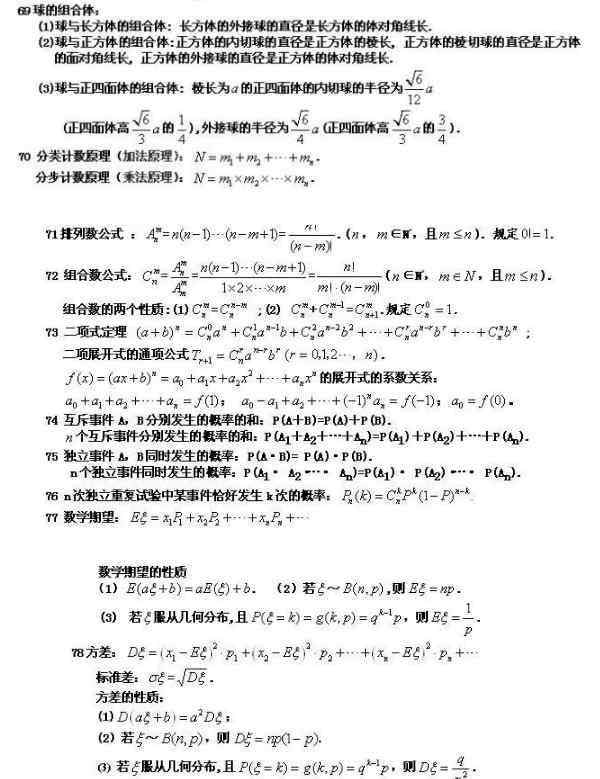 69球的组合体:
(1)球与长方体的组合体: 长方体的外接球的直径是长方体的体对角线长.
(2)球与正方体的组合体:正方体的内切球的直径是正方体的棱长, 正方体的棱切球的直径是正方体
的面对角线长, 正方体的外接球的直径是正方体的体对角线长.
(3)球与正四面体的组合体: 棱长为a的正四面体的内切球的半径为 √6/12 a
(正四面体高 √6/3 a的 1/4),外接球的半径为 √6/4 a (正四面体高 √6/3 a的 3/4).
70 分类计数原理(加法原理): N=m₁+m₂+⋯+mₙ.
分步计数原理(乘法原理): N=m₁×m₂×⋯×mₙ.
71排列数公式 : Aₙᵐ=n(n−1)⋯(n−m+1)= n!/(n−m)! .(n, m∈N*, 且m≤n). 规定0!=1.
72 组合数公式: Cₙᵐ= Aₙᵐ/Aₘᵐ = n(n−1)⋯(n−m+1)/(1×2×⋯×m) = n!/(m!·(n−m)!) (n∈N*, m∈N, 且m≤n).
组合数的两个性质:(1) Cₙᵐ=Cₙⁿ⁻ᵐ ;(2) Cₙᵐ+Cₙᵐ⁻¹=Cₙ₊₁ᵐ.规定Cₙ⁰=1.
73 二项式定理 (a+b)ⁿ=Cₙ⁰aⁿ+Cₙ¹aⁿ⁻¹b+Cₙ²aⁿ⁻²b²+⋯+Cₙʳaⁿ⁻ʳbʳ+⋯+Cₙⁿbⁿ ;
二项展开式的通项公式Tᵣ₊₁=Cₙʳaⁿ⁻ʳbʳ (r=0,1,2⋯, n).
f(x)=(ax+b)ⁿ=a₀+a₁x+a₂x²+⋯+aₙxⁿ的展开式的系数关系:
a₀+a₁+a₂+⋯+aₙ=f(1); a₀−a₁+a₂+⋯+(−1)ⁿaₙ=f(−1); a₀=f(0)。
74 互斥事件A, B分别发生的概率的和: P(A+B)=P(A)+P(B).
n个互斥事件分别发生的概率的和: P(A₁+A₂+⋯+Aₙ)=P(A₁)+P(A₂)+⋯+P(Aₙ).
75 独立事件A, B同时发生的概率: P(A·B)= P(A)·P(B).
n个独立事件同时发生的概率: P(A₁· A₂·⋯· Aₙ)=P(A₁)· P(A₂)·⋯· P(Aₙ).
76 n次独立重复试验中某事件恰好发生k次的概率: Pₙ(k)=CₙᵏPᵏ(1−P)ⁿ⁻ᵏ.
77 数学期望: Eξ=x₁P₁+x₂P₂+⋯+xₙPₙ+⋯
数学期望的性质
(1) E(aξ+b)=aE(ξ)+b. (2) 若ξ~B(n,p),则Eξ=np.
(3) 若ξ服从几何分布,且P(ξ=k)=g(k,p)=qᵏ⁻¹p, 则Eξ= 1/p .
78方差: Dξ=(x₁−Eξ)²·p₁+(x₂−Eξ)²·p₂+⋯+(xₙ−Eξ)²·pₙ+⋯
标准差: σξ=√Dξ.
方差的性质:
(1)D(aξ+b)=a²Dξ;
(2) 若ξ~B(n,p), 则Dξ=np(1−p).
(3) 若ξ服从几何分布,且P(ξ=k)=g(k,p)=qᵏ⁻¹p, 则Dξ= q/p² .